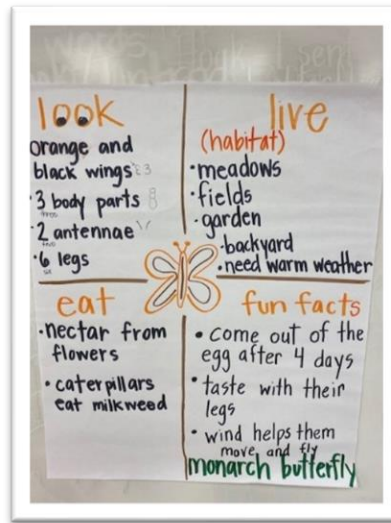 words
look
orange and
black wings
3
· 3 body parts
three
· 2 antennae
two
· 6 legs
six
live
(habitat)
· meadows
· fields
· garden
· backyard
· need warm weather
eat
· nectar from
flowers
· caterpillars
eat milkweed
fun facts
· come out of the
egg after 4 days
· taste with their
legs
· wind helps them
move and fly
monarch butterfly